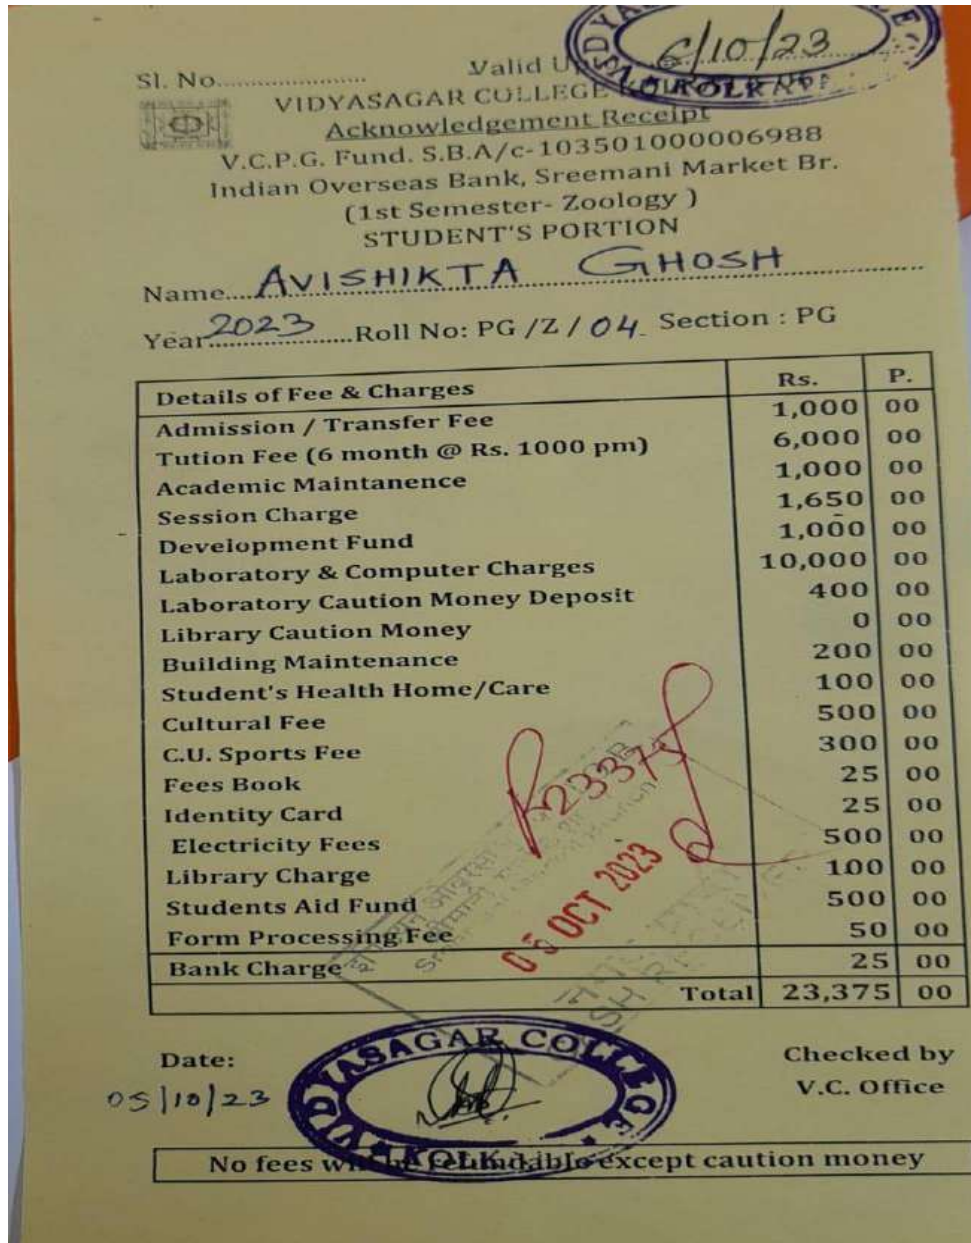 6/10/23
Sl. No.................... Valid
VIDYASAGAR COLLEGE
Acknowledgement Receipt
V.C.P.G. Fund. S.B.A/c-103501000006988
Indian Overseas Bank, Sreemani Market Br.
(1st Semester- Zoology )
STUDENT'S PORTION
Name....AVISHIKTA GHOSH
Year 2023 Roll No: PG /Z / 04 Section : PG
Details of Fee & Charges Rs. P.
Admission / Transfer Fee 1,000 00
Tution Fee (6 month @ Rs. 1000 pm) 6,000 00
Academic Maintanence 1,000 00
Session Charge 1,650 00
Development Fund 1,000 00
Laboratory & Computer Charges 10,000 00
Laboratory Caution Money Deposit 400 00
Library Caution Money 0 00
Building Maintenance 200 00
Student's Health Home/Care 100 00
Cultural Fee 500 00
C.U. Sports Fee 300 00
Fees Book 25 00
Identity Card 25 00
Electricity Fees 500 00
Library Charge 100 00
Students Aid Fund 500 00
Form Processing Fee 50 00
Bank Charge 25 00
Total 23,375 00
23375
05 OCT 2023
Date: Checked by
05/10/23 V.C. Office
VIDYASAGAR COLLEGE
KOLKATA
No fees will be refundable except caution money